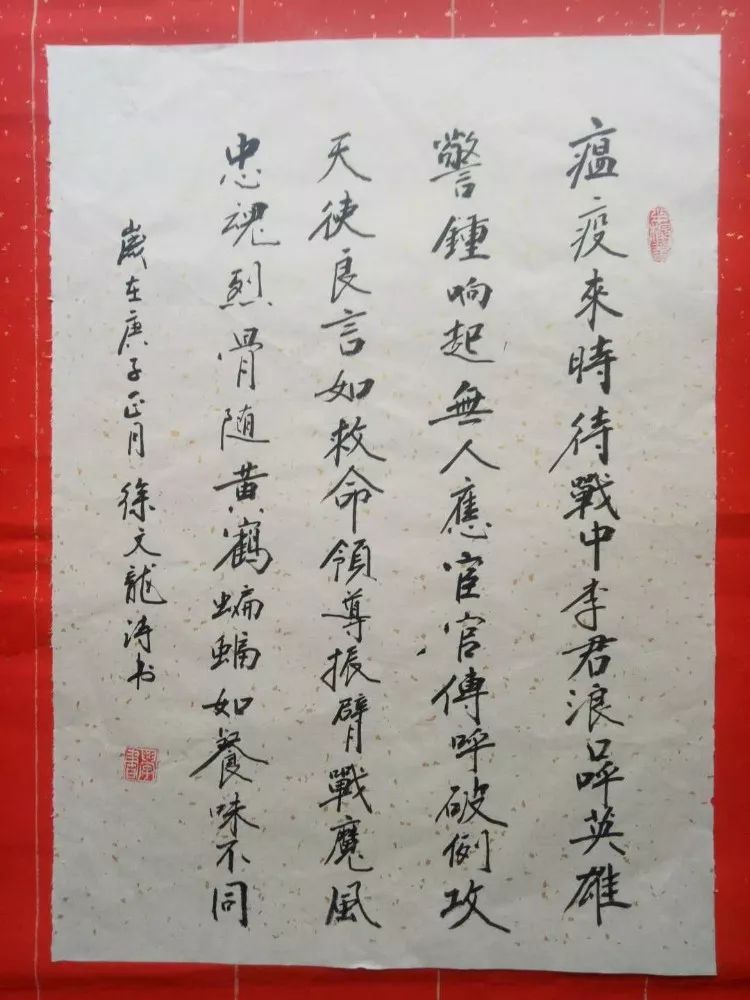 瘟疫來時待戰中李君浪呼英雄
警鍾响起無人應宦官傳呼破例攻
天使良言如救命領尊振臂戰魔風
忠魂烈骨随黄鶴蝙蝠如餐味不同
嵗在庚子正月徐文龍涛书